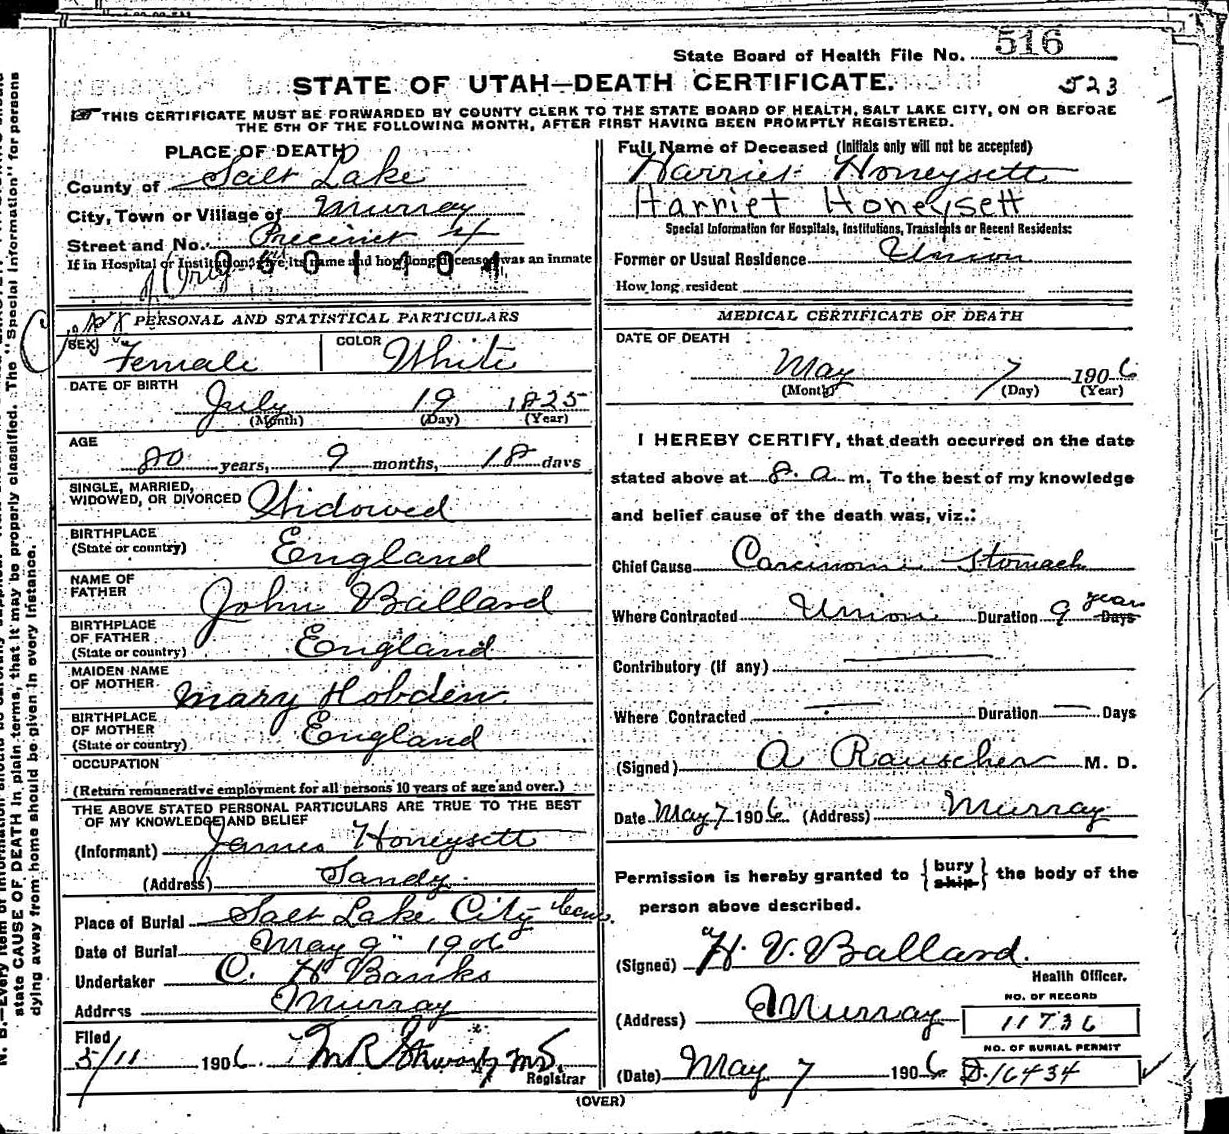 State Board of Health File No. 516
STATE OF UTAH—DEATH CERTIFICATE. 523
THIS CERTIFICATE MUST BE FORWARDED BY COUNTY CLERK TO THE STATE BOARD OF HEALTH, SALT LAKE CITY, ON OR BEFORE
THE 5TH OF THE FOLLOWING MONTH, AFTER FIRST HAVING BEEN PROMPTLY REGISTERED.
PLACE OF DEATH
County of Salt Lake
City, Town or Village of Murray
Street and No. Precinct 4
If in Hospital or Institution, give its name and how long deceased was an inmate
0601404
PERSONAL AND STATISTICAL PARTICULARS
SEX Female COLOR White
DATE OF BIRTH
July 19 1825
(Month) (Day) (Year)
AGE
80 years, 9 months, 18 days
SINGLE, MARRIED,
WIDOWED, OR DIVORCED Widowed
BIRTHPLACE
(State or country) England
NAME OF
FATHER John Ballard
BIRTHPLACE
OF FATHER
(State or country) England
MAIDEN NAME
OF MOTHER Mary Hobden
BIRTHPLACE
OF MOTHER
(State or country) England
OCCUPATION
(Return remunerative employment for all persons 10 years of age and over.)
THE ABOVE STATED PERSONAL PARTICULARS ARE TRUE TO THE BEST
OF MY KNOWLEDGE AND BELIEF
(Informant) James Honeysett
(Address) Sandy
Place of Burial Salt Lake City Cem.
Date of Burial May 9" 1906
Undertaker C. H Banks
Address Murray
Filed
5/11 1906.
Registrar
Full Name of Deceased (Initials only will not be accepted)
Harriet Honeysett
Harriet Honeysett
Special Information for Hospitals, Institutions, Transients or Recent Residents:
Former or Usual Residence Union
How long resident
MEDICAL CERTIFICATE OF DEATH
DATE OF DEATH
May 7 1906
(Month) (Day) (Year)
I HEREBY CERTIFY, that death occurred on the date
stated above at 8. a. m. To the best of my knowledge
and belief cause of the death was, viz.:
Chief Cause Carcinoma Stomach
Where Contracted Union Duration 9 years Days
Contributory (If any)
Where Contracted Duration Days
(Signed) A Rauscher M. D.
Date May 7 1906. (Address) Murray
Permission is hereby granted to {bury ship} the body of the
person above described.
(Signed) H. V. Ballard.
Health Officer.
(Address) Murray
NO. OF RECORD
11736
NO. OF BURIAL PERMIT
D.16434
(Date) May 7 1906
(OVER)
N. B.—Every item of information should be carefully supplied.
state CAUSE OF DEATH in plain terms, that it may be properly classified. The "Special Information" for persons
dying away from home should be given in every instance.